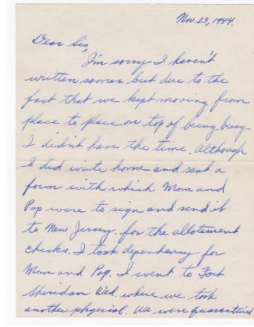 Nov. 23, 1944.
Dear Sis,
I'm sorry I haven't
written sooner but due to the
fact that we kept moving from
place to place on top of being busy
I didn't have the time. Although
I did write home and sent a
form with which Mom and
Pop were to sign and send it
to New Jersey. for the allotment
checks. I took dependency for
Mom and Pop. I went to Fort
Sheridan Wed. where we took
another physical. We were quarantined